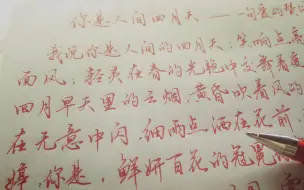 你是人间四月天——一句爱的赞
我说你是人间的四月天；笑响点亮
面风；轻灵在春的光艳中交舞着变
四月早天里的云烟，黄昏吹着风的
在无意中闪，细雨点洒在花前
你是，鲜妍百花的冠冕